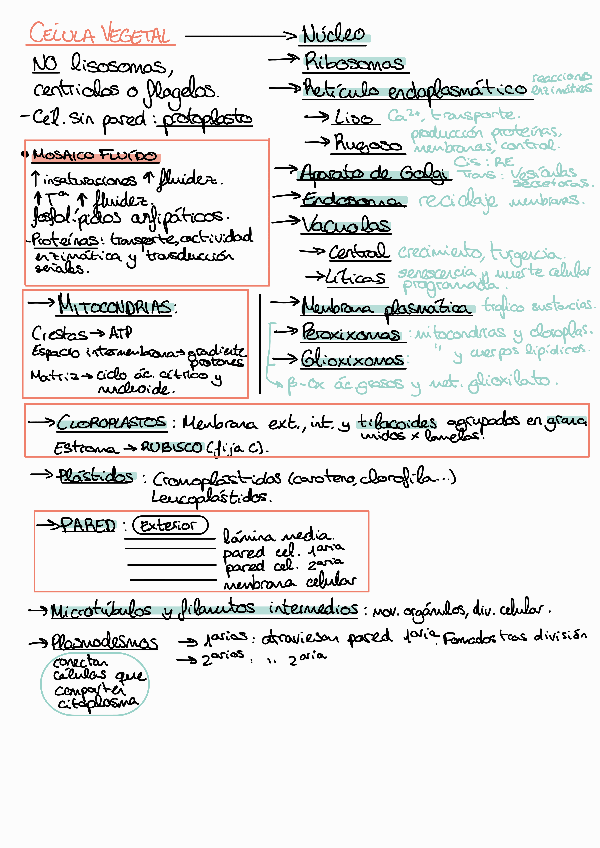 CÉLULA VEGETAL → Núcleo
NO lisosomas,
centriolos o flagelos.
- Cél. sin pared : protoplasto
→ Ribosomas
→ Retículo endoplasmático reacciones
enzimáticas
→ Liso Ca²⁺, transporte.
→ Rugoso producción proteínas,
membranas, control.
→ Aparato de Golgi Cis : RE
Trans : Vesículas
secretoras.
→ Endosoma reciclaje membranas.
→ Vacuolas
→ Central crecimiento, turgencia.
→ Líticas senescencia y muerte celular
programada.
• MOSAICO FLUIDO
↑ insaturaciones ↑ fluidez.
↑ Tª ↑ fluidez.
fosfolípidos anfipáticos.
- Proteínas: transporte, actividad
enzimática y transducción
señales.
→ MITOCONDRIAS:
Crestas → ATP
Espacio intermembrana → gradiente
protones
Matriz → ciclo ác. cítrico y
nucleoide.
→ Membrana plasmática trafico sustancias.
→ Peroxixomas : mitocondrias y cloroplas.
→ Glioxixomas : " y cuerpos lipídicos.
→ β-Ox ác. grasos y met. glioxilato.
→ CLOROPLASTOS : Membrana ext., int. y tilacoides agrupados en grana
unidos x lamelas.
Estroma → RUBISCO (fija C).
→ Plástidos : Cromoplástidos (caroteno, clorofila...)
Leucoplástidos.
→ PARED : Exterior
lámina media.
pared cel. 1aria
pared cel. 2aria
membrana celular
→ Microtúbulos y filamentos intermedios : mov. orgánulos, div. celular.
→ Plasmodesmos → 1arios : atraviesan pared 1aria. Formados tras división
→ 2arios : " 2aria
conectan
células que
comparten
citoplasma